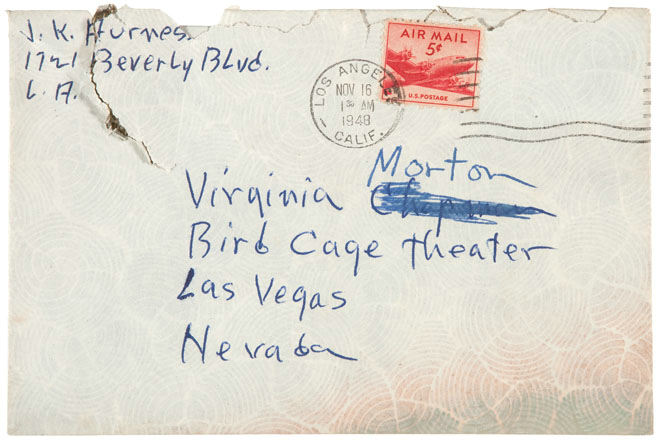 J. K. Hurnes.
1721 Beverly Blvd.
L.A.
AIR MAIL
5¢
U.S. POSTAGE
LOS ANGELES
NOV 16
1 30 AM
1948
CALIF.
Morton
Virginia
Bird Cage theater
Las Vegas
Nevada